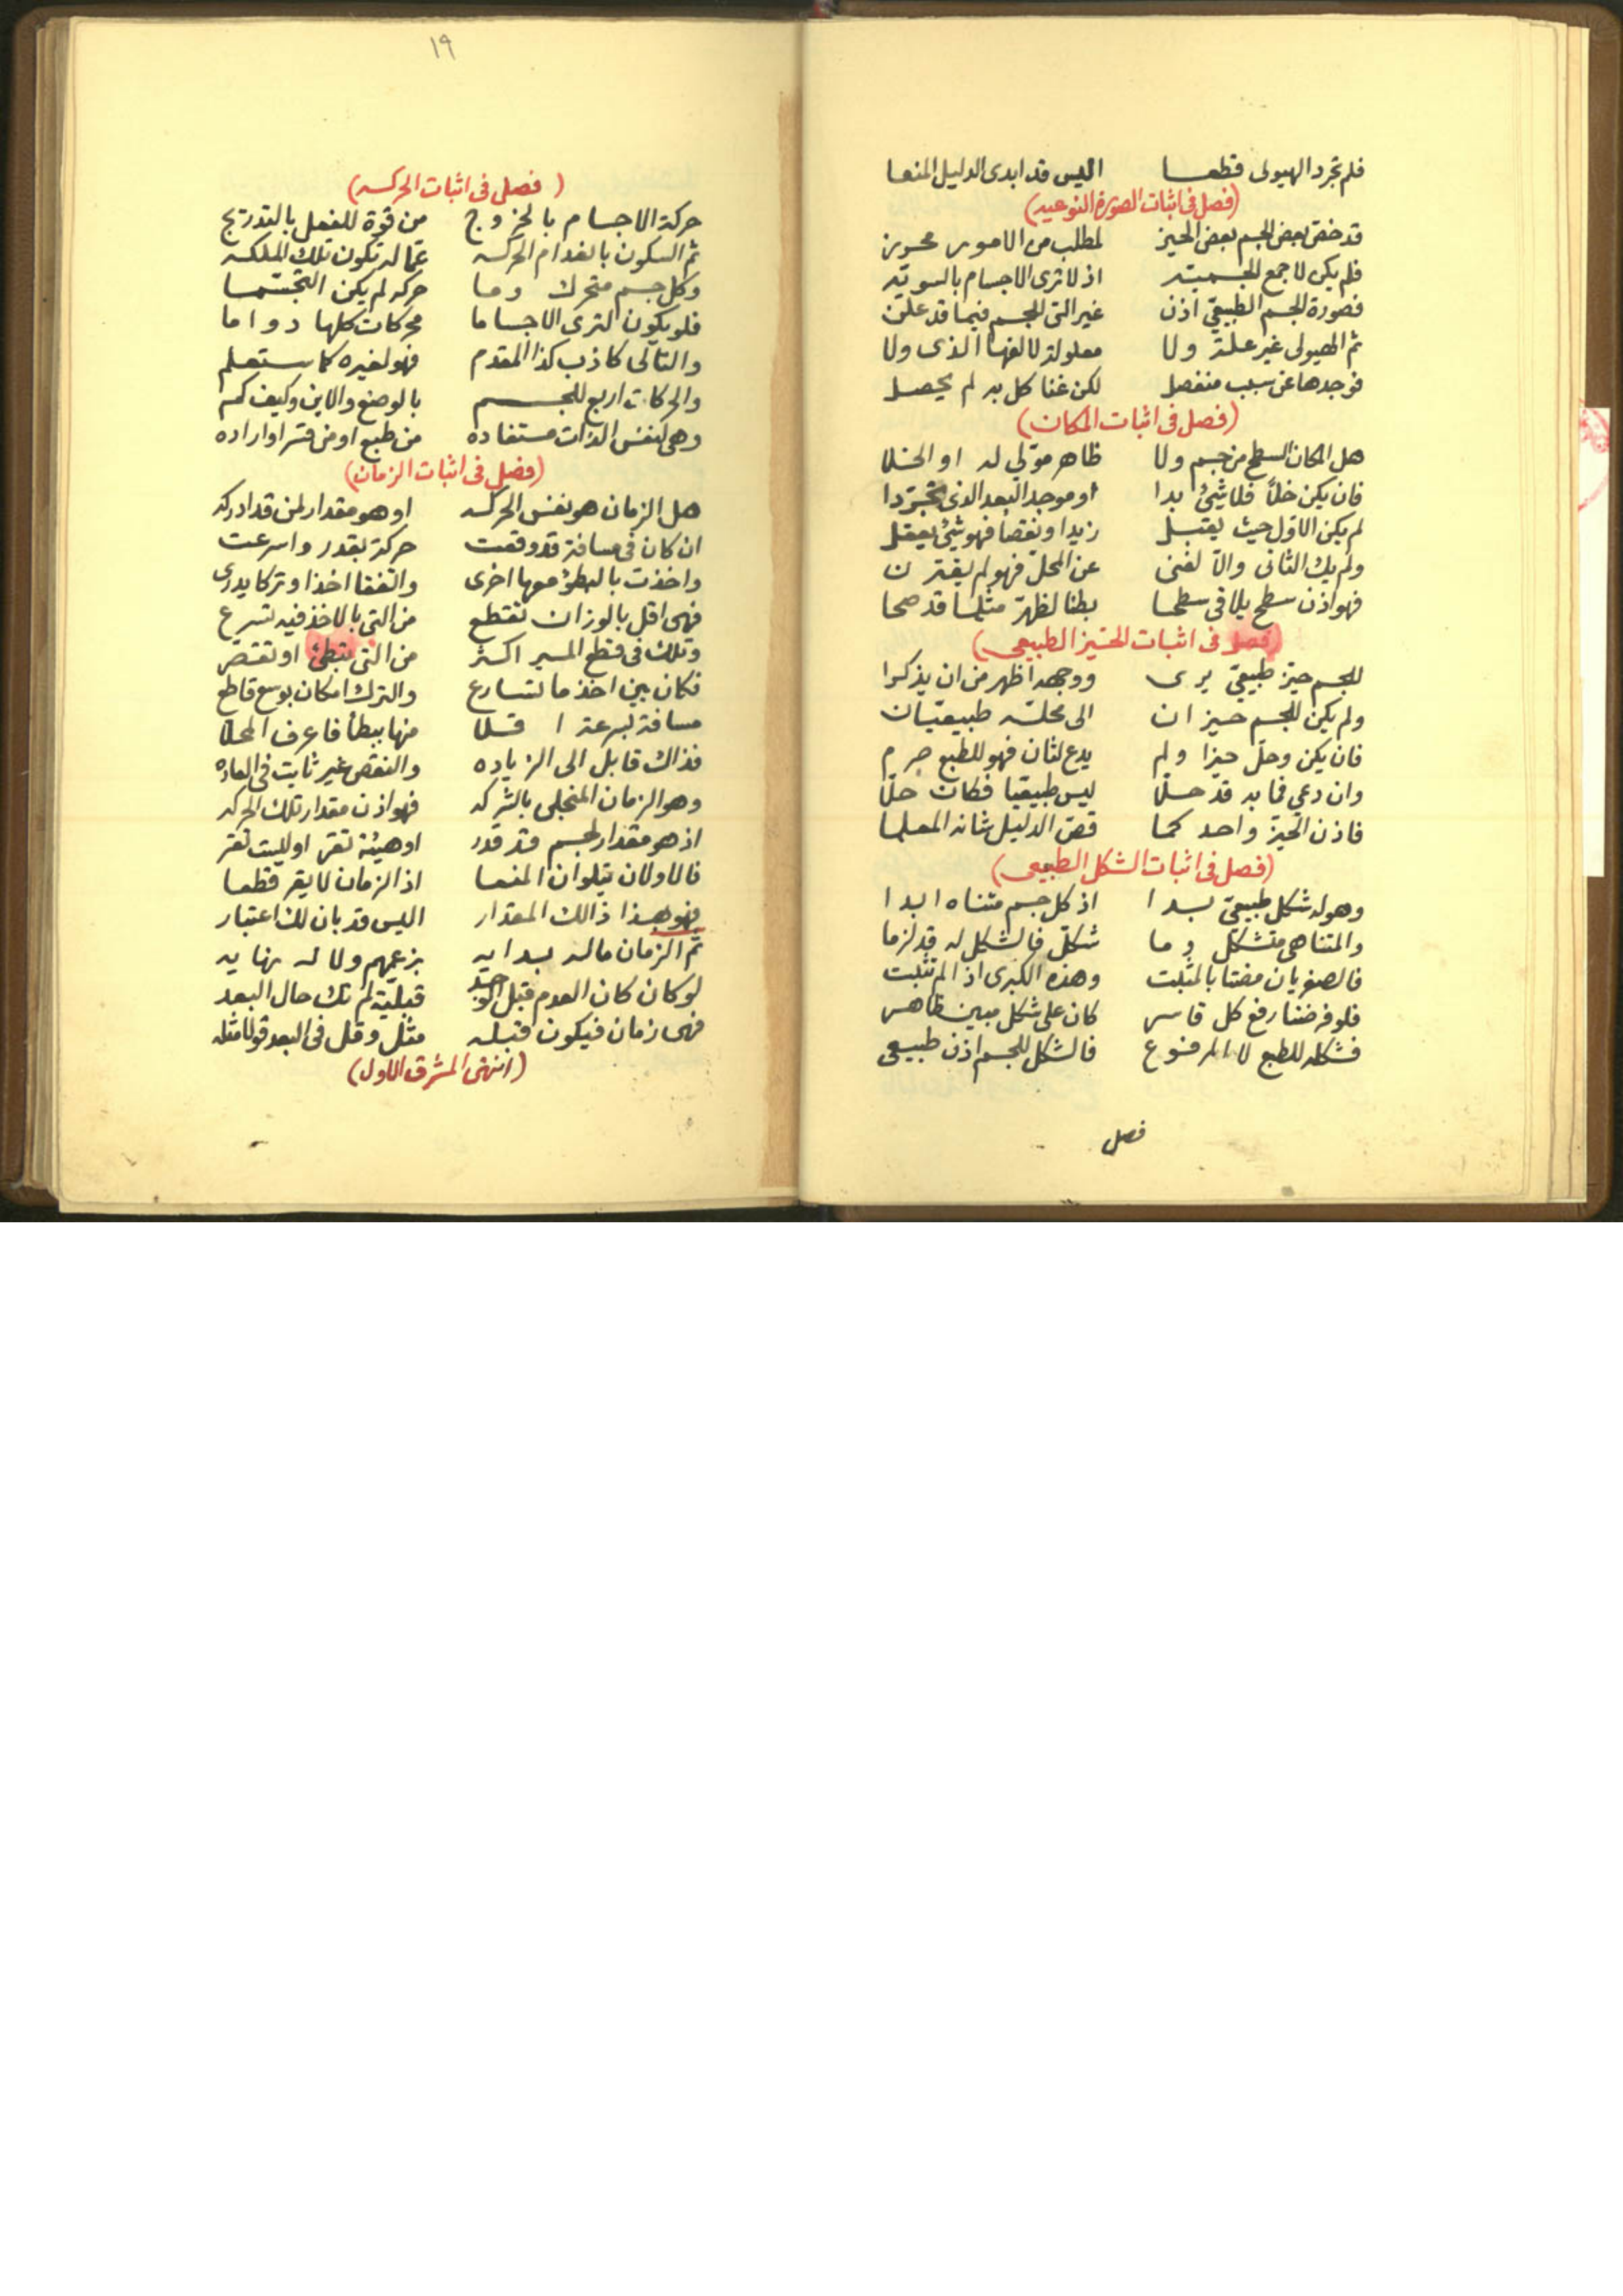 فلم تجرد الهيولى قطعا اليس قد ابدى الدليل المنعا
(فصل فى اثبات الصورة النوعيه)
قد خص بعض الجسم بعض الحيز لمطلب من الامور محوز
فلم يكن لاجمع الجسميه اذ لا ترى الاجسام بالسويه
فصورة الجسم الطبيعى اذن غير التى للجسم فيما قد علن
ثم الهيولى غير علة ولا معلولة لالفها الذى ولا
فوجدها عن سبب منفصل لكن غنا كل به لم يحصل
(فصل فى اثبات المكان)
هل المكان السطح من جسم ولا ظاهر موّلي له او الخلا
فان يكن خلاً فلا شئ بدا او موجد البعد الذى تجرّدا
لم يكن الاول حيث يقبل زيدا ونقصا فهو شئ يعقل
ولم يك الثانى والا لغنى عن المحل فهو لم يقترن
فهو اذن سطح يلاقى سطحا بطنا لظهر مثلما قد صحا
(فصل فى اثبات الحيّز الطبيعى)
للجسم حيز طبيعىّ يرى ووجهه اظهر من ان يذكرا
ولم يكن للجسم حيزان الى محله طبيعيّان
فان يكن وحلّ حيزا ولم يدع لثان فهو للطبع جرم
وان دعي فما به قد حلّا ليس طبيعيا فكان حلّا
فاذن الحيز واحد كما قصّ الدليل شانه المعلما
(فصل فى اثبات الشكل الطبيعى)
وهو له شكل طبيعىّ بدا اذ كل جسم متناه ابدا
والمتناهى متشكل وما شكّل فالشكل له قد لزما
فالصغريان مضتا بالمثبت وهذه الكبرى اذا لم تثبت
فلو فرضنا رفع كل قاسر كان على شكل مبين ظاهر
فشكله للطبع لا المرفوع فالشكل للجسم اذن طبيعى
فصل
١٩
(فصل فى اثبات الحركه)
حركة الاجسام بالخروج من قوة للفعل بالتدريج
ثم السكون بانعدام الحركه عمّا له تكون تلك الملكه
وكل جسم متحرك وما حركه لم يكن التجسّما
فلو يكون لترى الاجساما محركات كلها دواما
والتالى كاذب كذا المقدم فهو لغيره كما ستعلم
والحركات اربع للجسم بالوضع والاين وكيف كم
وهى لنفس الذات مستفاده من طبع او من قسر او اراده
(فصل فى اثبات الزمان)
هل الزمان هو نفس الحركه او هو مقدار لمن قد ادركه
ان كان فى مسافة قد وقعت حركة بقدر واسرعت
واخذت بالبطؤ معها اخرى واتفقا اخذا وتركا يدرى
فهى اقل بالوزان تقطع من التى بالاخذ فيه تسرع
وتلك فى قطع المسير اكثر من التى تبطئ او تقتصر
فكان بين اخذ ما تسارع والترك امكان بوسع قاطع
مسافة بسرعة اقلا منها ببطأ فاعرف المحلا
فذاك قابل الى الزياده والنقص غير ثابت فى العاده
وهو الزمان المنجلى بالشركه فهو اذن مقدار تلك الحركه
اذ هو مقدار لجسم قد قدر او هيئة تقر او ليست تقر
فالاولان يتلوان المنعا اذ الزمان لا يقر قطعا
فهو هذا ذالك المقدار اليس قد بان لك اعتبار
ثم الزمان ماله بدايه بزعمهم ولا له نهايه
لو كان كان العدم قبل الوجد قبلية لم تك حال البعد
فهى زمان فيكون قبله مثل وقل فى البعد قولا مثله
(انتهى المشرق الاول)